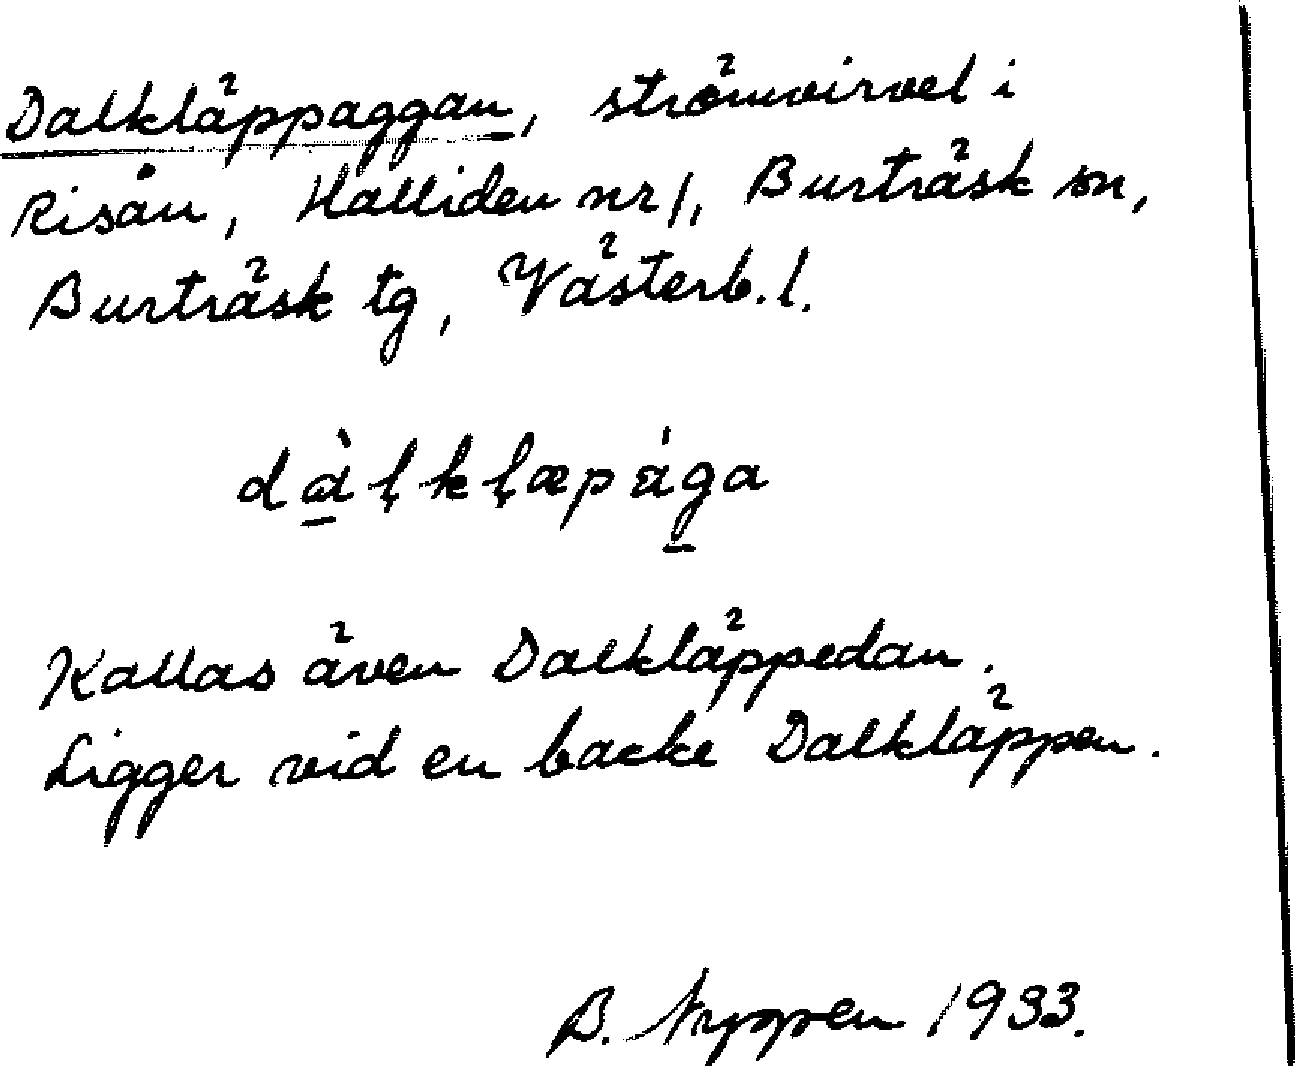 Dalkläppaggan, strömvirvel i
Risån, Halliden nr 1, Burträsk sn,
Burträsk tg, Västerb. l.
dàḷkḷæpága
Kallas även Dalkläppedan.
Ligger vid en backe Dalkläppen.
B. 1933.